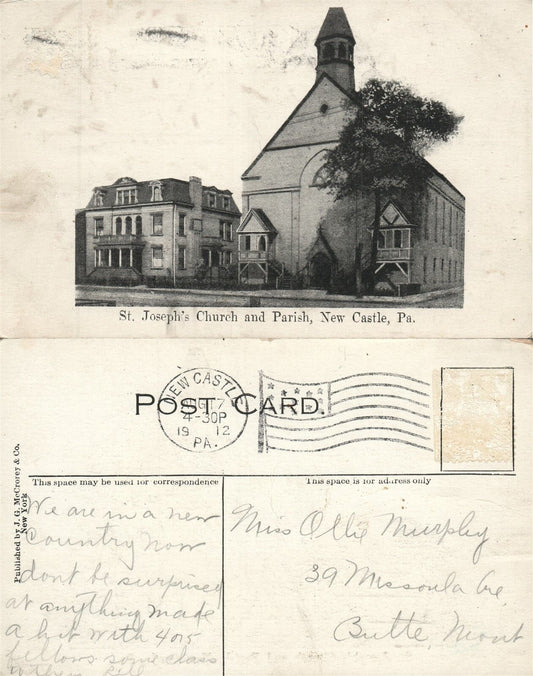 St. Joseph's Church and Parish, New Castle, Pa.
NEW CASTLE
4-30P
19 12
PA.
POST CARD.
Published by J. G. McCrorey & Co.
New York
This space may be used for correspondence
This space is for address only
We are in a new
Country now
dont be surprised
at anything made
a hit with 4 or 5
fellows some class
Miss Ollie Murphy
39 Missoula Ave
Butte, Mont